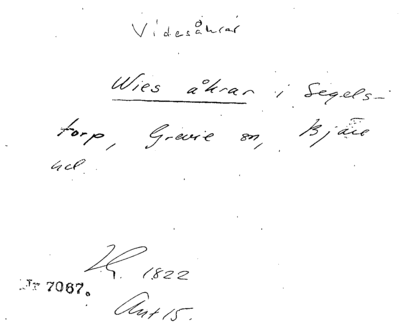 Videsåkrar
Wies åkrar i Segels-
torp, Grevie sn, Bjäre
hd.
1822
Nr 7087.
Ant 15.